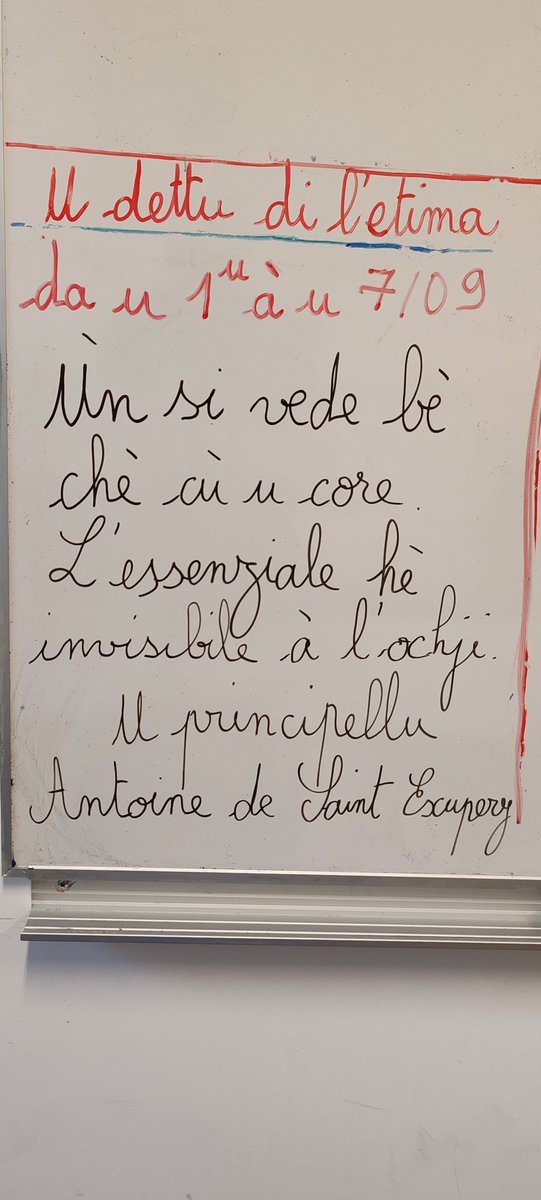 U dettu di l'etima
da u 1u à u 7/09
Ùn si vede bè
chè cù u core.
L'essenziale hè
invisibile à l'ochji.
U principellu
Antoine de Saint Exupery